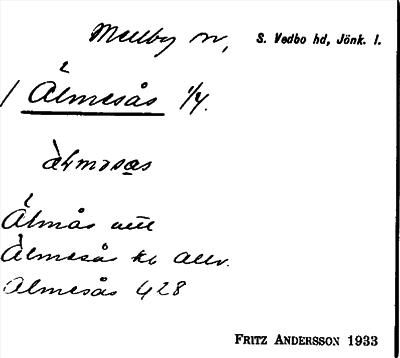 Mellby sn, S. Vedbo hd, Jönk. l.
/ Älmesås 1/4.
àlmasas
Älmås
Älmesås kb allm.
Almesås 428
FRITZ ANDERSSON 1933